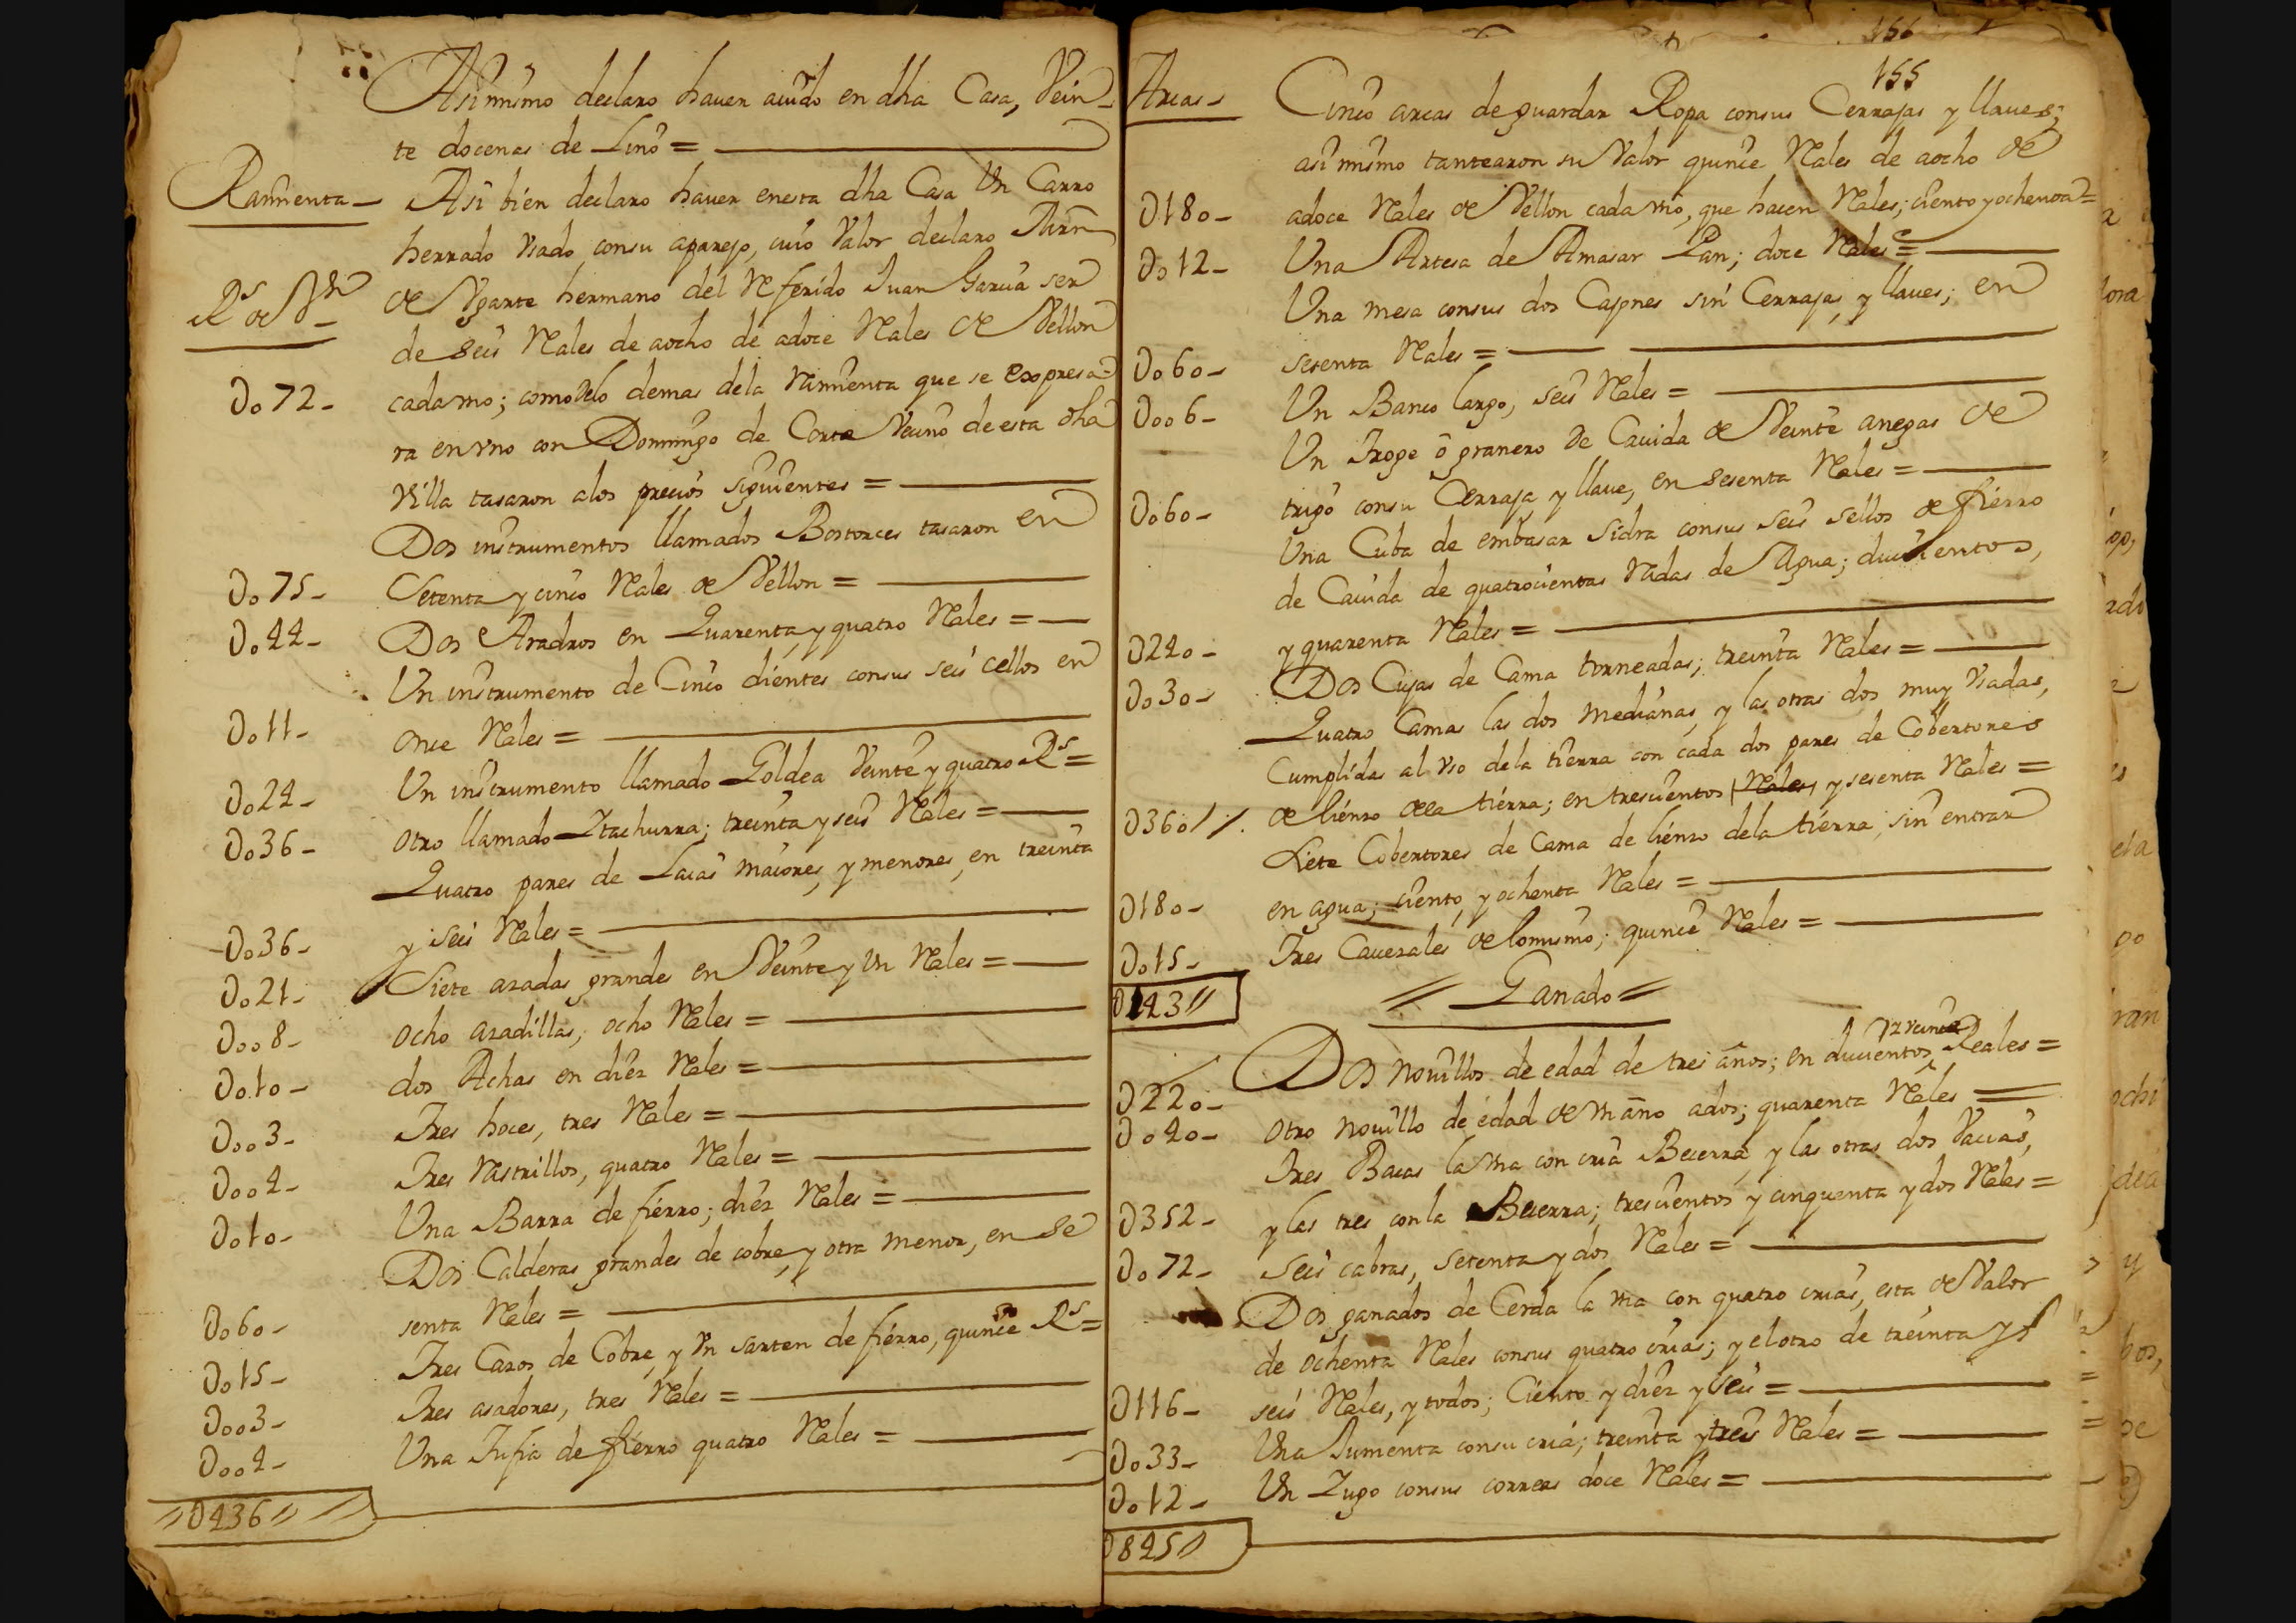 Asimismo declaro haver avido en dha Casa, Vein-
te docenas de Lino =
Ramienta_
Asi bien declaro haver enesta dha Casa Vn Carro
herrado vsado consu aparejo, cuio Valor declaro
Rs de Vn_
de Vgarte hermano del Referido Juan Garcia ser
de seis Rales de aocho de adoce Rales de Vellon
Do72_
cadavno; como de lo demas dela Ramienta que se expresa
ra envno con Domingo de Vecino deesta dha
Villa tasaron alos precios siguientes =
Dos instrumentos llamados Bostorces tasaron en
Do75_
Setenta y cinco Rales de Vellon =
Do44_
Dos Aradros en Quarenta, y quatro Rales =
Un instrumento de Cinco dientes consus seis cellos en
Do11_
Once Rales =
Do24_
Un instrumento llamado Goldea Veinte y quatro Rs =
Do36_
Otro llamado Itachurra; treinta y seis Rales =
Quatro pares de Laias maiores, y menores, en treinta
Do36_
y seis Rales =
Do21_
Siete azadas grandes en Veinte y Vn Rales =
Doo8_
Ocho azadillas, ocho Rales =
Do10_
dos Achas en diez Rales =
Doo3_
Tres hoces, tres Rales =
Doo4_
Tres Rastrillos, quatro Rales =
Do10_
Una Barra de fierro; diez Rales =
Dos Calderas grandes de cobre, y otra menor, en se
Do60_
senta Rales =
Do15_
Tres Cazos de Cobre, y Vn sarten de fierro, quince Rs =
Doo3_
Tres asadores, tres Rales =
Doo4_
Una de fierro quatro Rales =
//D436//
156
155
Arcas_
Cinco arcas de guardar Ropa consus Cerrajas y llaves;
asimismo tantearon su Valor quince Rales de aocho de
D180_
adoce Rales de Vellon cada vno, que hacen Rales; ciento y ochenta =
Do12_
Una Artesa de Amasar Pan; doce Rales =
Una mesa consus dos Cajones sin Cerrajas, y llaves; en
Do60_
sesenta Rales =
Doo6_
Un Banco largo, seis Rales =
Un Troge ô granero de Cauida de Veinte anegas de
Do60_
trigo consu Cerraja y llave, en sesenta Rales =
Una Cuba de embasar Sidra consus seis sellos de fierro
de Cauida de quatrocientas Vadas de Agua; ducientos,
D240_
y quarenta Rales =
Do30_
Dos Cujas de Cama torneadas; treinta Rales =
Quatro Camas las dos medianas, y las otras dos muy vsadas,
Cumplidas al vso dela tierra con cada dos pares de Cobertores
D360//.
de lienzo dela tierra; en trescientos Rales y sesenta Rales =
Siete Cobertores de Cama de lienzo dela tierra, sin entrar
D180_
en agua; ciento, y ochenta Rales =
Do15_
Tres Cavezales de lomismo; quince Rales =
D143//
// Ganado //
y veinte
Dos novillos de edad de tres años; en ducientos Reales =
D220_
Do40_
Otro novillo de edad de vn año ados; quarenta Rales =
Tres Bacas la vna con cria Becerra y las otras dos Vacias,
D352_
y las tres conla Becerra; trescientos y cinquenta y dos Rales =
Do72_
Seis cabras, setenta y dos Rales =
Dos ganados de Cerda la vna con quatro crias, esta de Valor
de ochenta Rales consus quatro crias; y el otro de treinta y
D116_
seis Rales, y todos; Ciento y diez y seis =
Do33_
Una Jumenta consu cria; treinta y tres Rales =
Do12_
Un Iugo consus correas doce Rales =
D845//